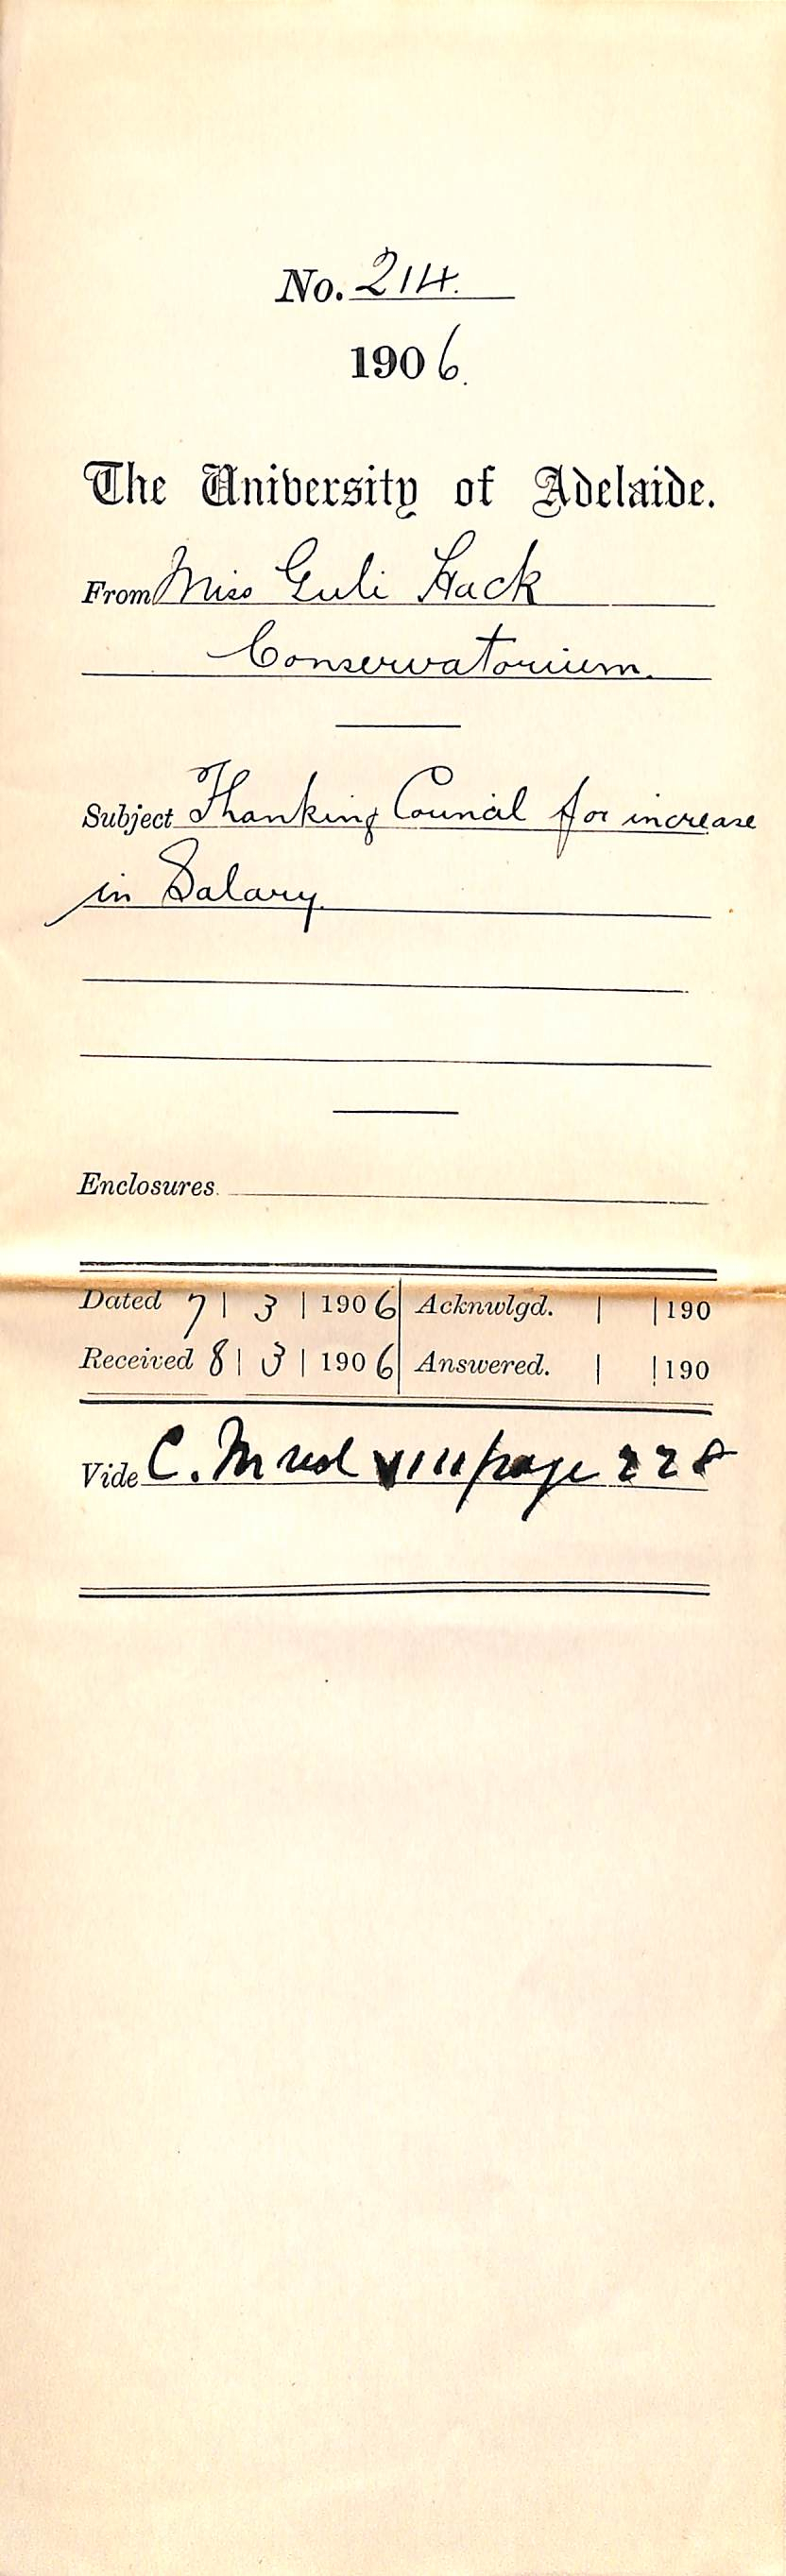 No. 214.
1906.
The University of Adelaide.
From Miss Guli Hack
Conservatorium.
Subject Thanking Council for increase
in Salary.
Enclosures.
Dated 7 | 3 | 1906 Acknwlgd. | | 190
Received 8 | 3 | 1906 Answered. | | 190
Vide C. M vol VIII page 228